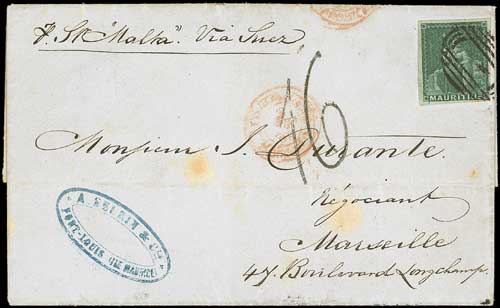 P. Str "Malta". Via Suez
MAURITIUS
16
Monsieur J. Durante.
Négociant
Marseille
47 Boulevard Longchamp.
PORT-LOUIS ILE MAURICE